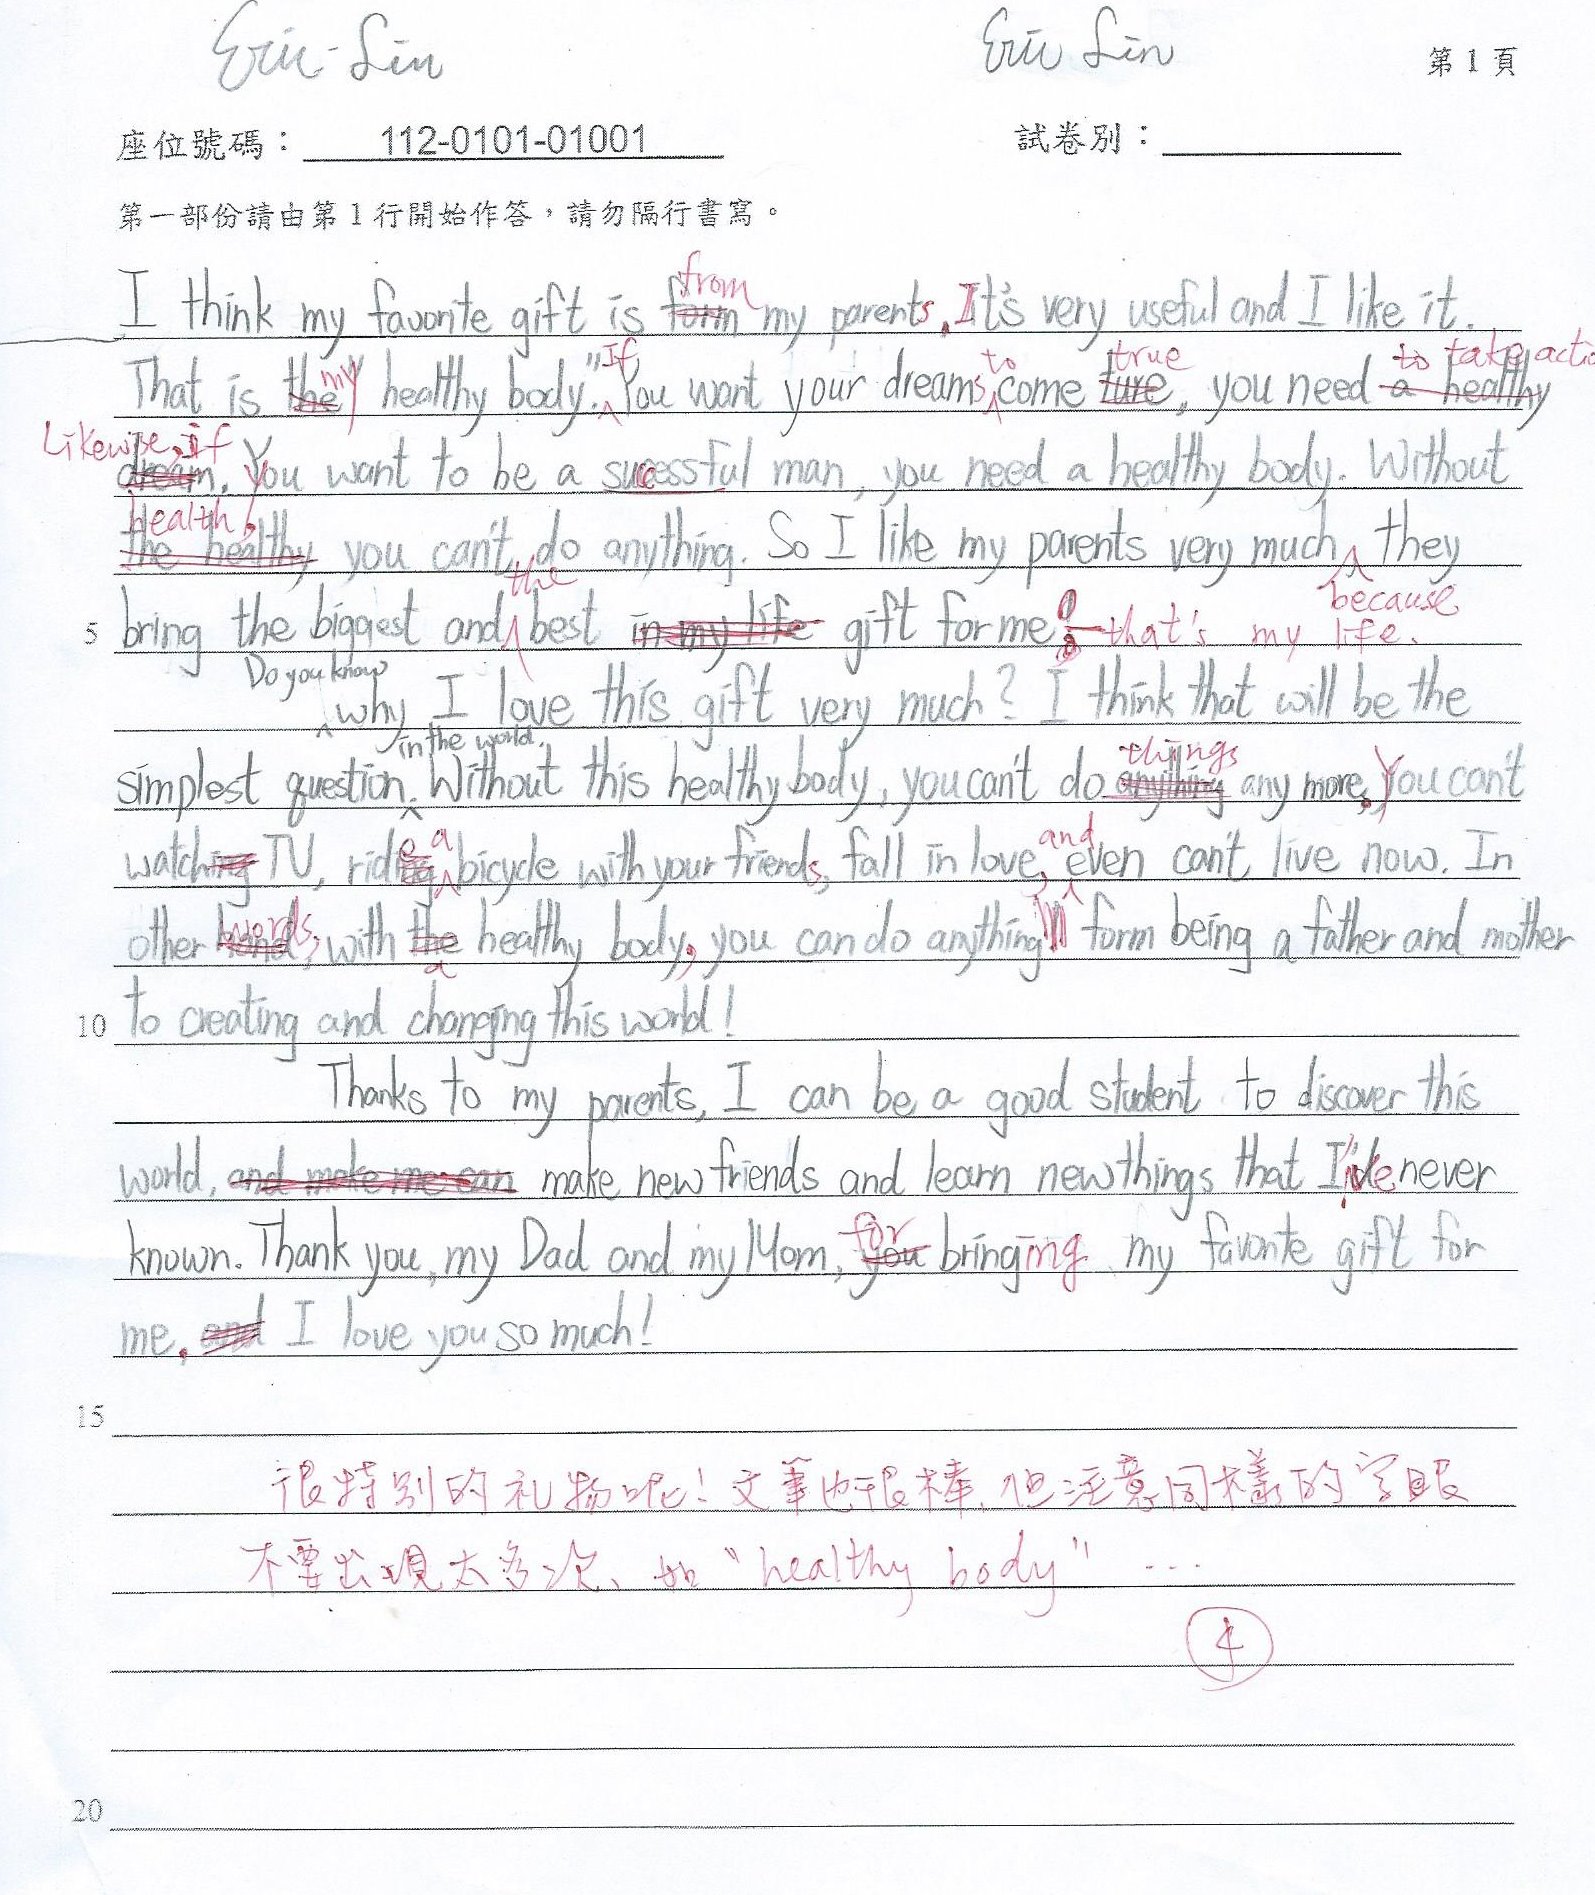 Eric Lin
Eric Lin
第 1 頁
座位號碼：112-0101-01001
試卷別：
第一部份請由第 1 行開始作答，請勿隔行書寫。
from
I think my favorite gift is form my parents. It's very useful and I like it.
my If to true to take actio
That is the healthy body." You want your dreams come ture, you need a healthy
Likewise, if
dream. You want to be a sucessful man, you need a healthy body. Without
health,
the healthy you can't do anything. So I like my parents very much they
the because
5 bring the biggest and best in my life gift for me that's my life.
Do you know
why I love this gift very much? I think that will be the
in the world. things
simplest question. Without this healthy body, you can't do anything any more. You can't
e a and
watching TV, riding bicycle with your friends, fall in love, even can't live now. In
words,
other hand, with the healthy body, you can do anything form being a father and mother
a
10 to creating and changing this world!
Thanks to my parents, I can be a good student to discover this
world, and make me can make new friends and learn new things that I've never
for
known. Thank you, my Dad and my Mom, you bringing my favorite gift for
me. and I love you so much!
15
很特別的礼物呢！文筆也很棒，但注意同樣的字眼
不要出現太多次、如 "healthy body" ...
4
20